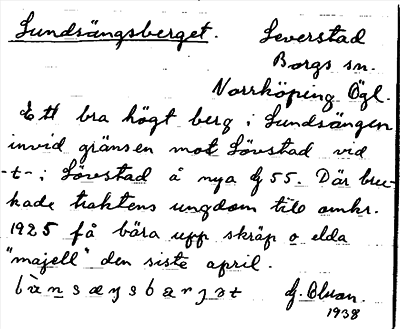 Lundsängsberget. Leverstad
Borgs sn.
Norrköping Ögl.
Ett bra högt berg i Lundsängen
invid gränsen mot Lövstad vid
-t- i Lövstad å nya 55. Där bru-
kade traktens ungdom till omkr.
1925 få bära upp skräp o elda
"majell" den siste april.
1938